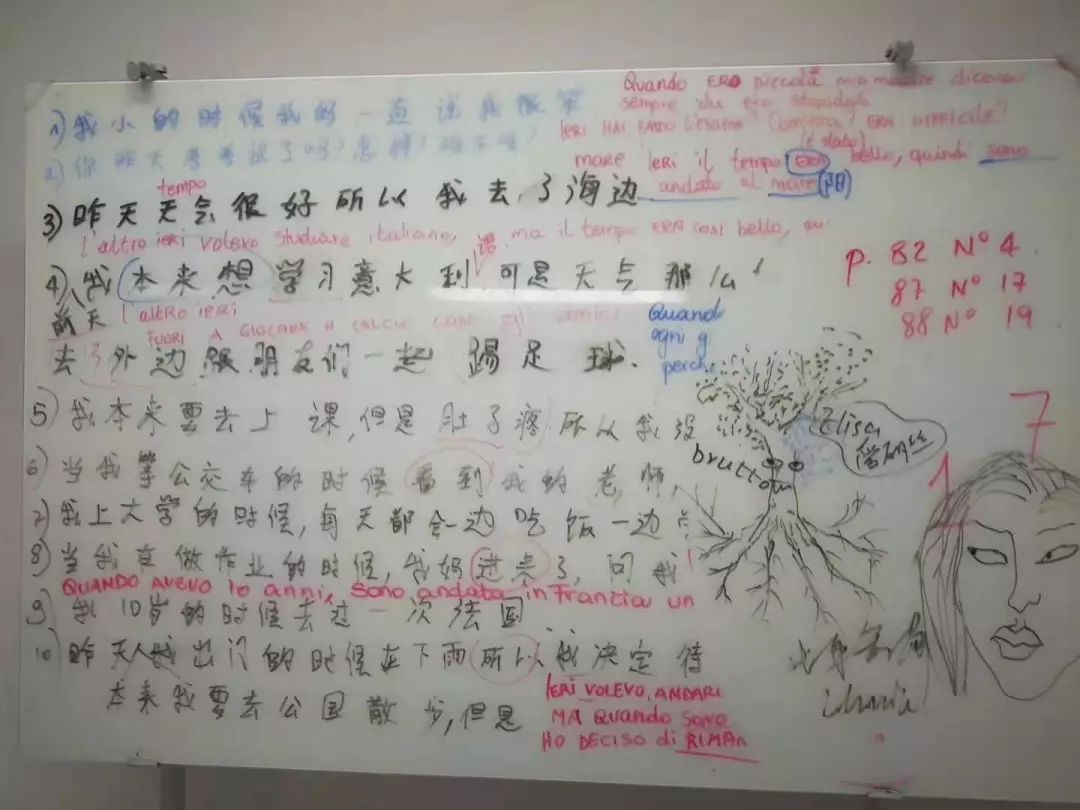 Quando ERO piccola mia madre diceva
1) 我小的时候我妈一直说我很笨
sempre che ero stupida
IERI HAI FATTO L'ESAME? Com'era? ERA DIFFICILE?
(è stato)
2) 你昨天考考试了吗?怎样?
mare ieri il tempo ERA bello, quindi sono
tempo
andato al mare (阳)
3) 昨天天会很好所以我去了海边
L'altro ieri volevo studiare italiano, ma il tempo ERA così bello, qu
4) 我本来想学习意大利 可是天气那么
课
前天 L'altro ieri
FUORI A GIOCARE A CALCIO CON gli amici
去了外边跟朋友们一起踢足球.
Quando
ogni g
perch
p. 82 N° 4.
87 N° 17
88 N° 19
5) 我本来要去上课,但是肚子疼所以我没
6) 当我等公交车的时候看到我的老师,
7) 我上大学的时候,每天都会一边吃饭一边
8) 当我在做作业的时候,我妈进来了,问我
QUANDO AVEVO 10 anni, sono andata in Francia un
9) 我10岁的时候去过一次法国
10) 昨天我出门的时候在下雨所以我决定待
本来我要去公园散步,但是
IERI VOLEVO, ANDARE
MA QUANDO SONO
HO DECISO di RIMAN
brutto
Elisa
7
1